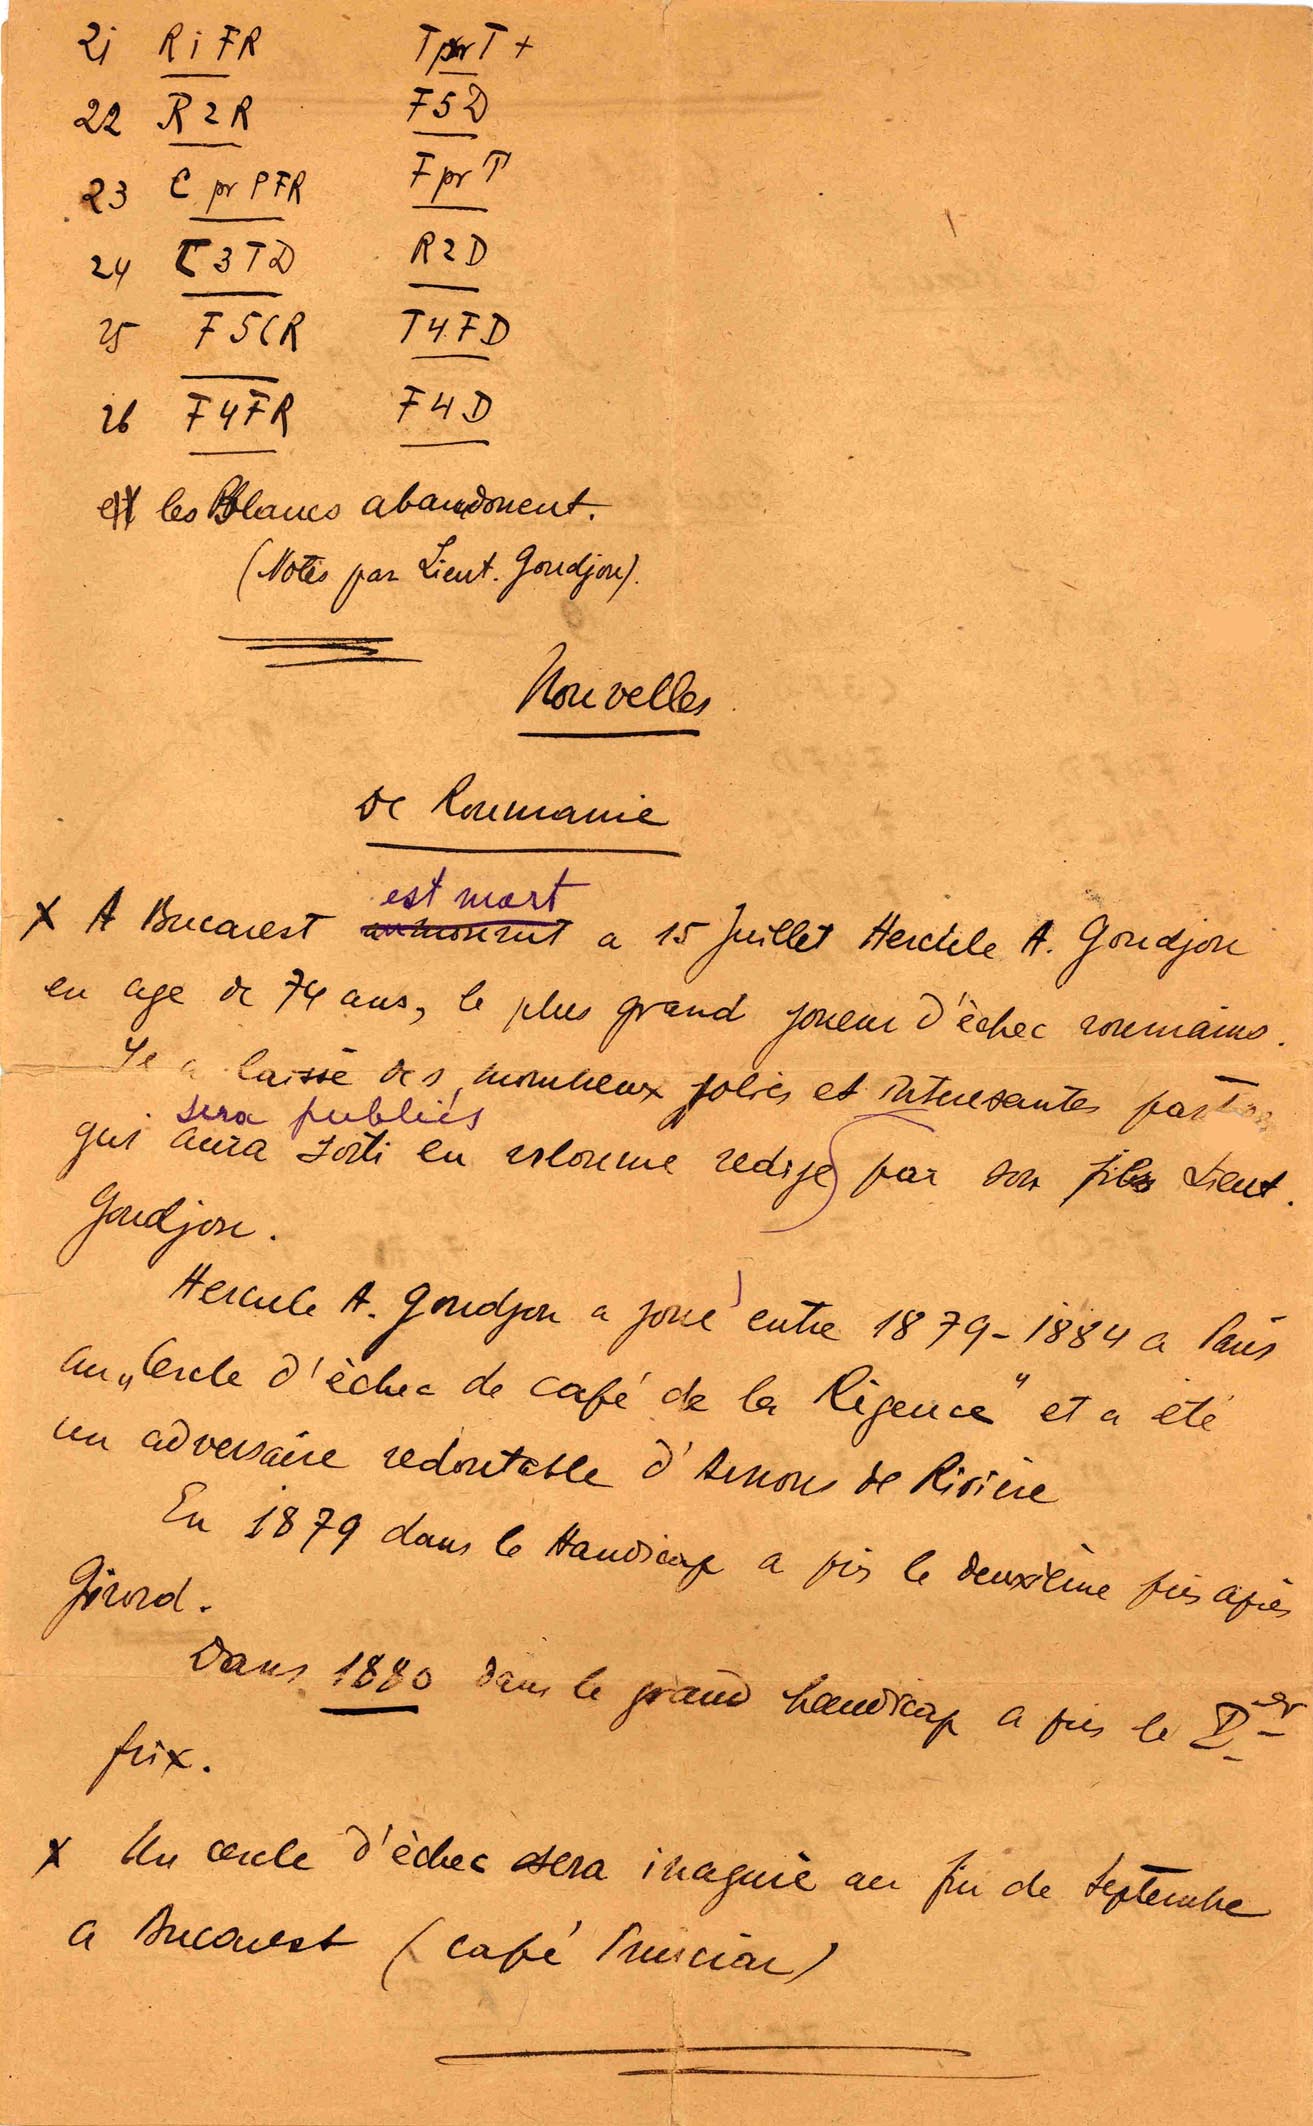 21 R1FR TprT +
22 R2R F5D
23 C pr PFR F pr T
24 C3TD R2D
25 F5CR T4FD
26 F4FR F4D
et les Blancs abandonent.
(Notes par Lieut. Goudjon).
Nouvelles
de Roumanie
est mort
x A Bucarest a 15 Juillet Hercule A. Goudjon
en age de 74 ans, le plus grand joueur d'èchec roumains.
Il a laissè des nombeux jolies et interesantes parties
sera publiés
qui aura sorti en voloume redige par son fils Lieut.
Goudjon.
Hercule A. Goudjon a joué entre 1879-1884 a Paris
au „Cercle d'èchec de café de la Rigence" et a été
un adversaire redoutable d'Arnous de Rivière
En 1879 dans le Handicap a pis le deuxième pis après
Girord.
Dans 1880 dans le grand handicap a pis le I er
prix.
x Un cercle d'èchec sera inagurè au fin de Septembre
a Bucarest (café)